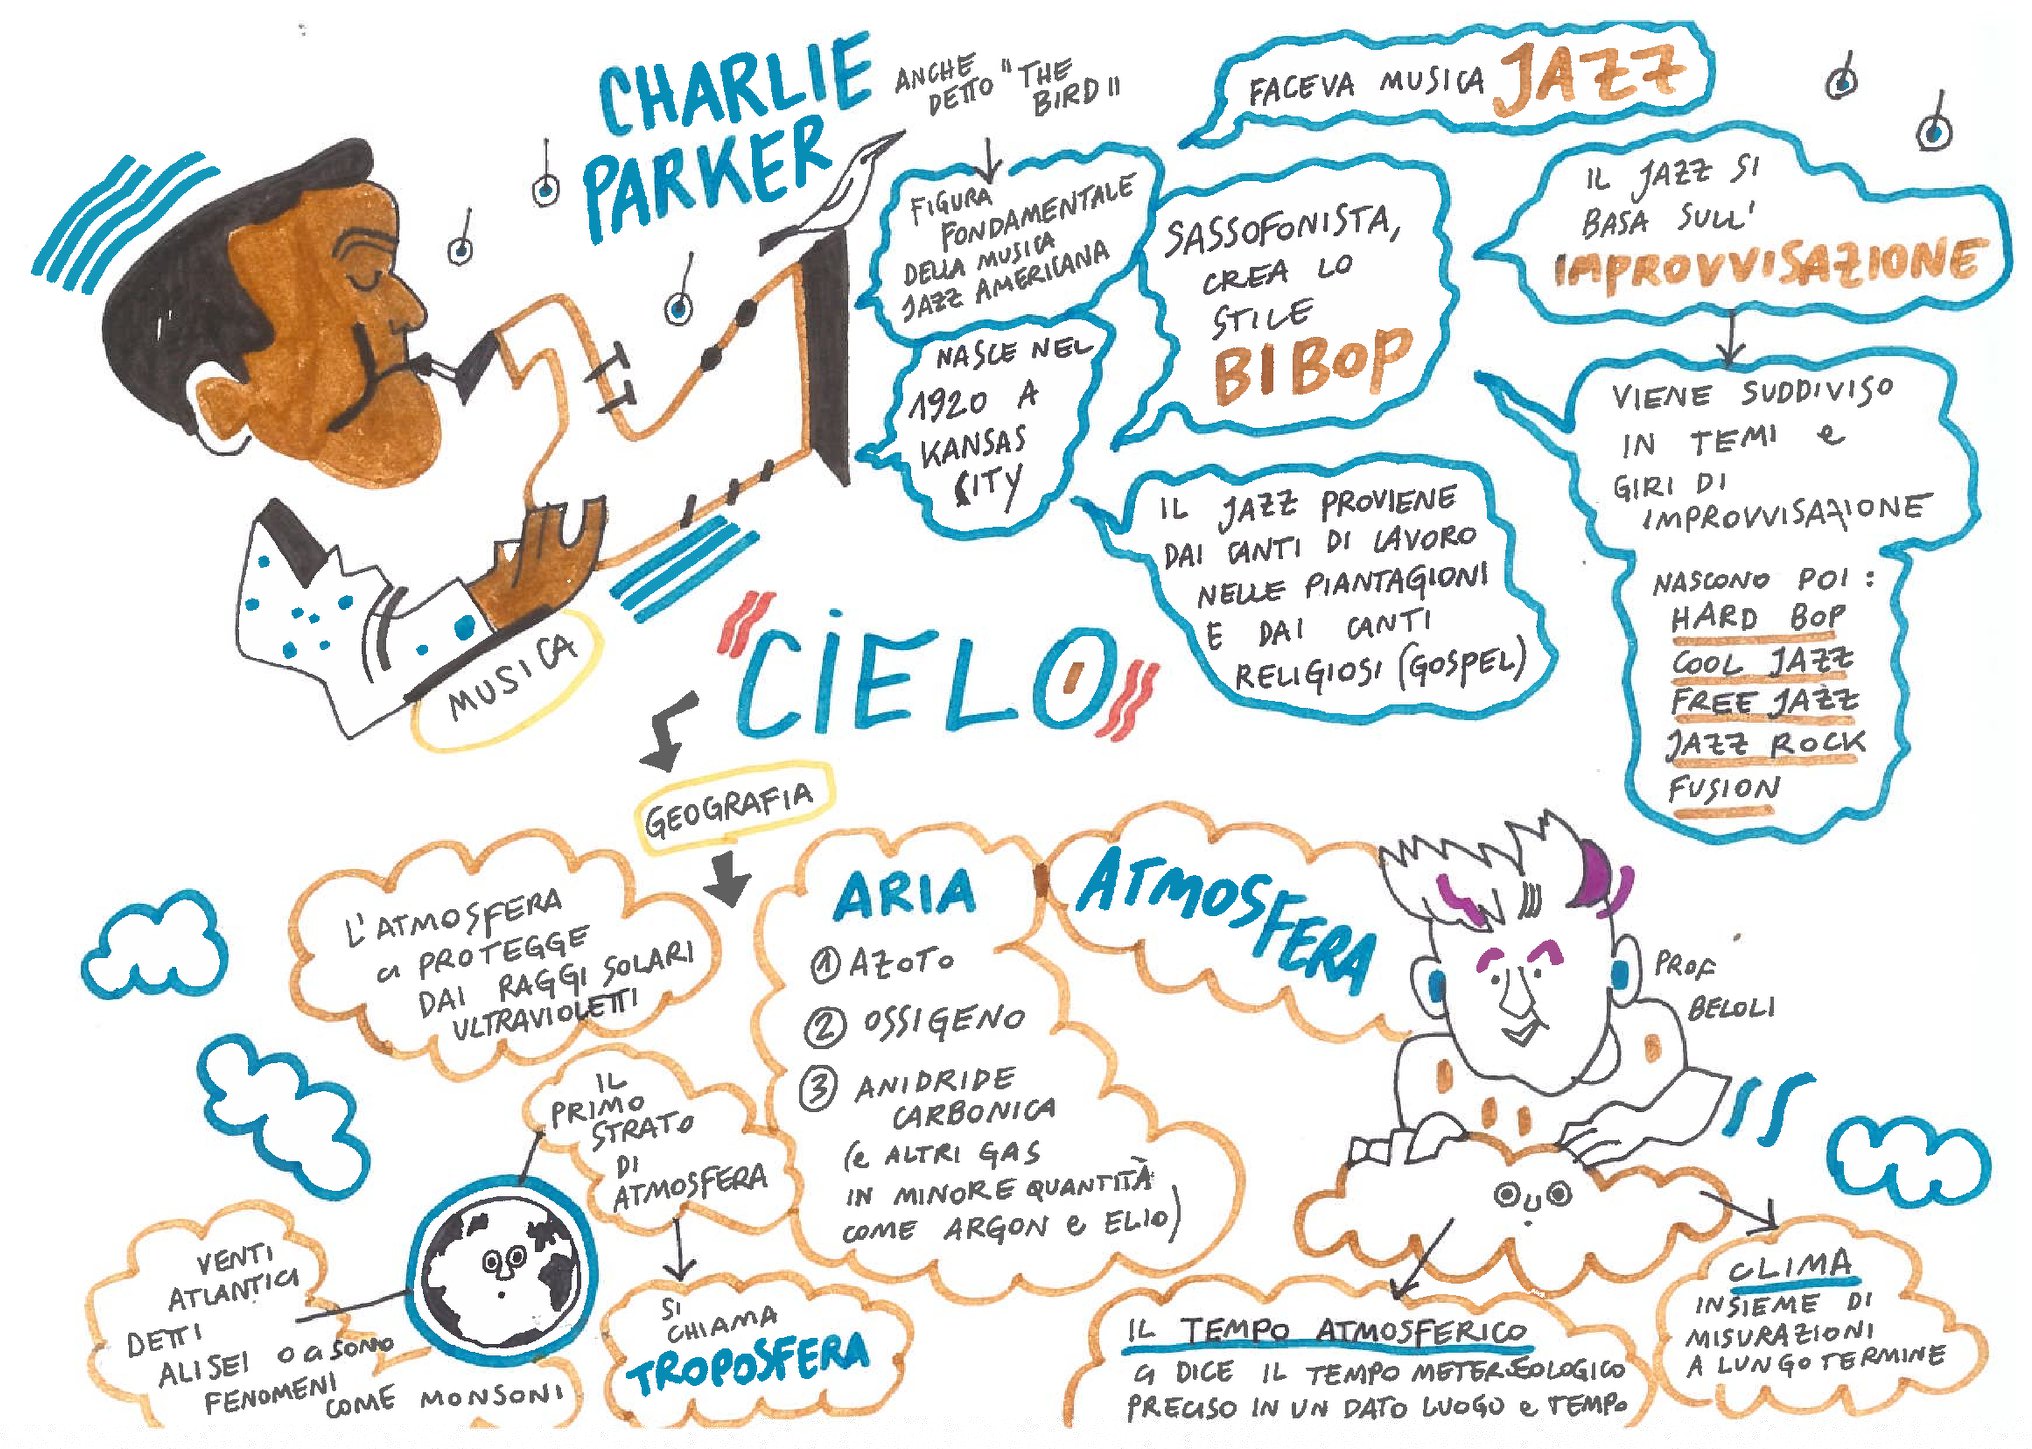 CHARLIE
PARKER
ANCHE
DETTO "THE
BIRD"
FIGURA
FONDAMENTALE
DELLA MUSICA
JAZZ AMERICANA
NASCE NEL
1920 A
KANSAS
CITY
SASSOFONISTA,
CREA LO
STILE
BIBOP
FACEVA MUSICA JAZZ
IL JAZZ SI
BASA SULL'
IMPROVVISAZIONE
VIENE SUDDIVISO
IN TEMI e
GIRI DI
IMPROVVISAZIONE
NASCONO POI:
HARD BOP
COOL JAZZ
FREE JAZZ
JAZZ ROCK
FUSION
IL JAZZ PROVIENE
DAI CANTI DI LAVORO
NELLE PIANTAGIONI
E DAI CANTI
RELIGIOSI (GOSPEL)
MUSICA
"CIELO"
GEOGRAFIA
L'ATMOSFERA
ci PROTEGGE
DAI RAGGI SOLARI
ULTRAVIOLETTI
ARIA
1 AZOTO
2 OSSIGENO
3 ANIDRIDE
CARBONICA
(e ALTRI GAS
IN MINORE QUANTITÀ
COME ARGON e ELIO)
ATMOSFERA
PROF
BELOLI
IL
PRIMO
STRATO
DI
ATMOSFERA
SI
CHIAMA
TROPOSFERA
VENTI
ATLANTICI
DETTI
ALISEI o ci sono
FENOMENI
COME MONSONI
IL TEMPO ATMOSFERICO
ci DICE IL TEMPO METEREOLOGICO
PRECISO IN UN DATO LUOGO e TEMPO
CLIMA
INSIEME DI
MISURAZIONI
A LUNGO TERMINE